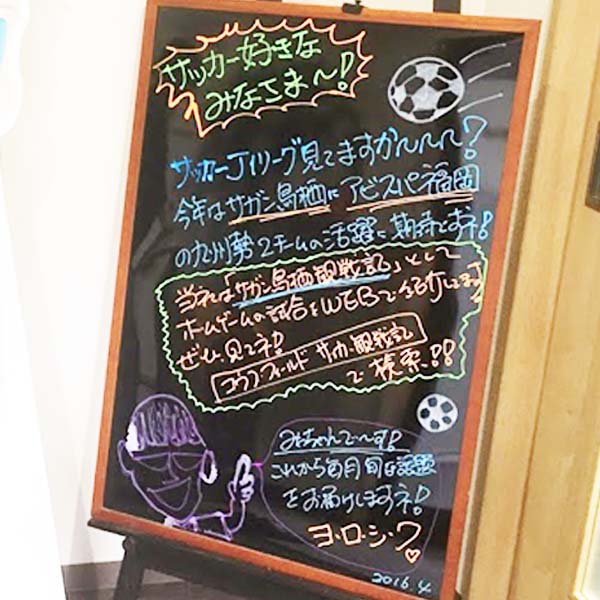 サッカー好きな
みなさま〜!
サッカーJリーグ見てますかぁ〜〜〜?
今年はサガン鳥栖にアビスパ福岡
の九州勢2チームの活躍に期待ですネ!
当社は「サガン鳥栖観戦記」として
ホームゲームの試合をWEBで紹介してます!
ぜひ、見てネ!
コウフフィールド サッカー観戦記
で検索!!
みちゃんで〜す!
これから毎月旬な話題
をお届けしますネ!
ヨ・ロ・シ・ク♡
2016.4